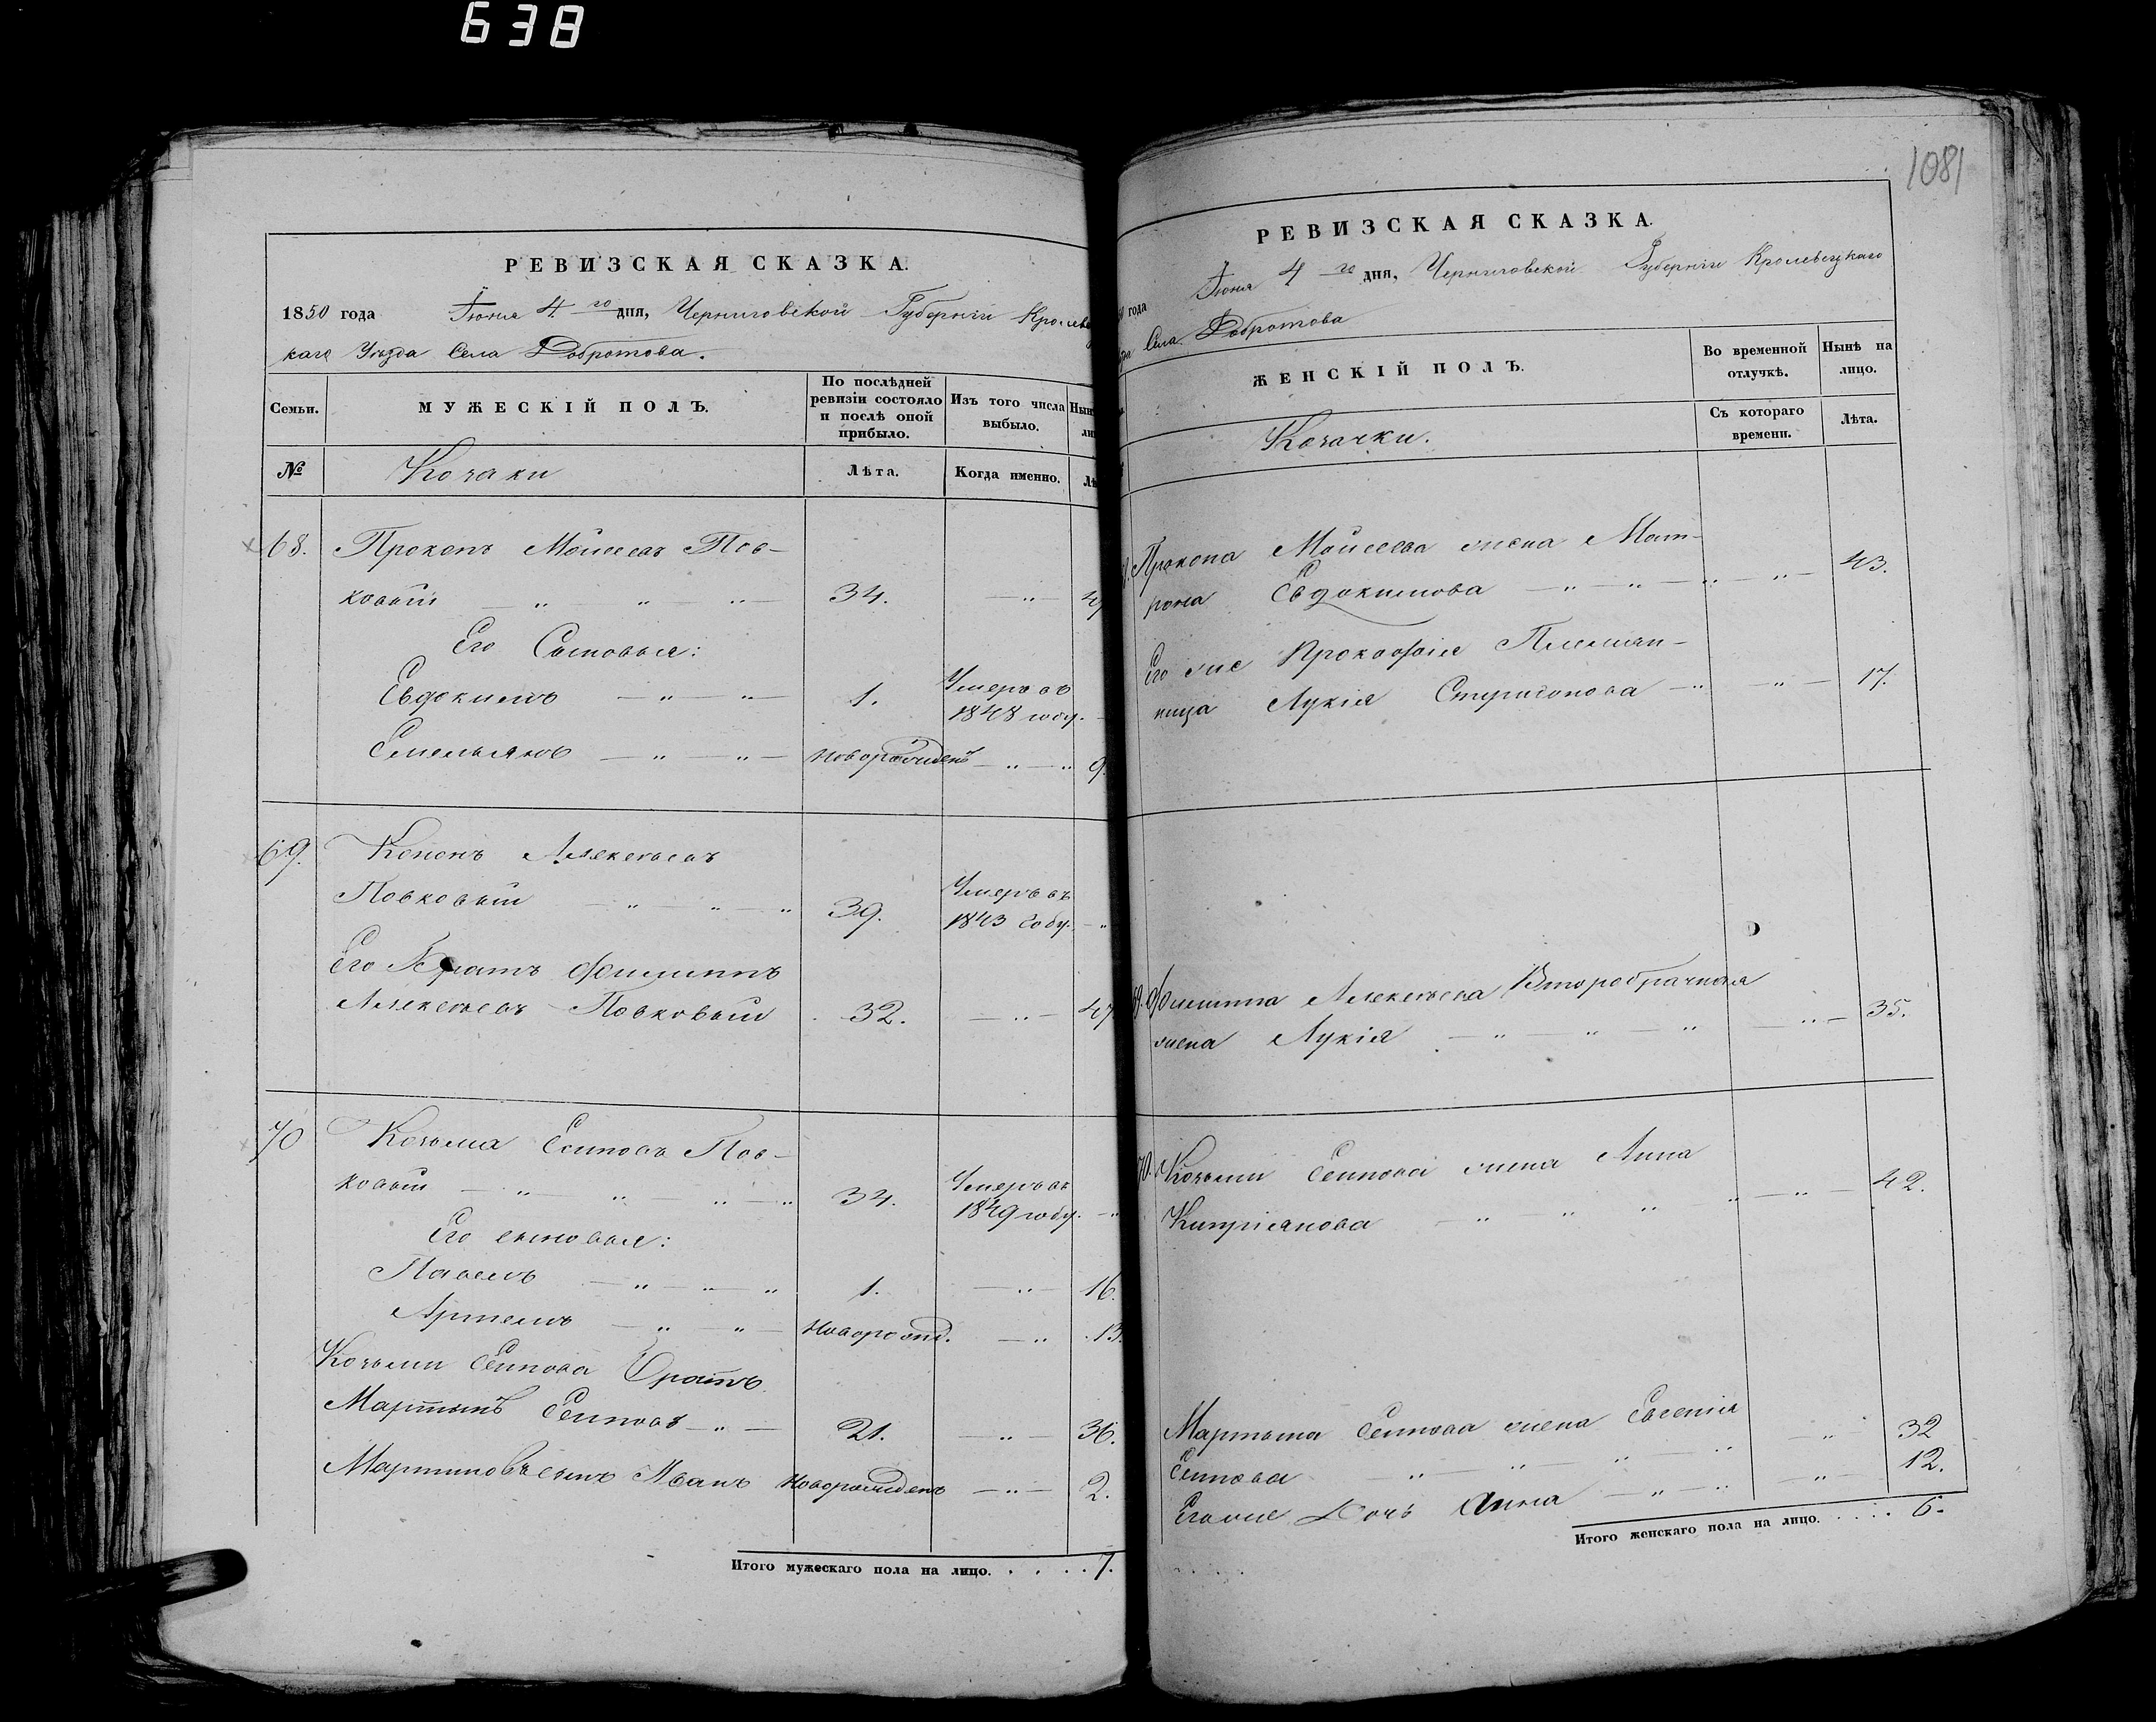 638
РЕВИЗСКАЯ СКАЗКА.
1850 года Іюня 4 го дня, Черниговской Губерніи Кролевец
каго Уѣзда Села Добротова.
Семьи.
МУЖЕСКІЙ ПОЛЪ.
По послѣдней
ревизіи состояло
и послѣ оной
прибыло.
Изъ того числа
выбыло.
№
Козаки
Лѣта.
Когда именно.
68. Прокопъ Мойсеевъ Пов-
ковый — „ — „ — „ — 34. — „ —
Его Сыновья:
Евдокимъ — „ — „ — 1. Умеръ въ
1848 году.
Емельянъ — „ — „ — новорожденъ — „ — „ 9.
69. Кононъ Алексѣевъ
Повковый — „ — „ — „ 39. Умеръ въ
1843 году. — „
Его Братъ Филиппъ
Алексѣевъ Повковый 32. — „ — 47
70 Козьма Есиповъ Пов-
ковый — „ — „ — „ — „ 34. Умеръ въ
1849 году. — „
Его сыновья:
Павелъ — „ — „ — „ 1. — „ — 16.
Артемъ — „ — „ — Новорожд. — „ 13.
Козьмы Есипова Братъ
Мартынъ Есиповъ — „ — 21. — „ — 36.
Мартиновъ сынъ Иванъ Новорожденъ — „ — 2.
Итого мужескаго пола на лицо. . . . . 7.
1081
РЕВИЗСКАЯ СКАЗКА.
года Іюня 4 го дня, Черниговской Губерніи Кролевецкаго
Села Добротова
ЖЕНСКІЙ ПОЛЪ.
Во временной
отлучкѣ.
Нынѣ на
лицо.
Козачки.
Съ котораго
времени.
Лѣта.
Прокопа Мойсеева жена Мат-
рона Евдокимова — „ — „ — „ — „ — 43.
Его же Прокофія Племян-
ница Лукія Стригонова — „ — „ — 17.
69. Филиппа Алексѣева Второбрачная
жена Лукія — „ — „ — „ — „ — 35.
70. Козьмы Есипова жена Анна
Кипріянова — „ — „ — „ — „ — „ — 42.
Мартына Есипова жена Евгенія
Есипова „ — „ — „ — „ — „ 32
Его же Дочь Анна — „ — „ — „ — 12.
Итого женскаго пола на лицо. . . . . 6.